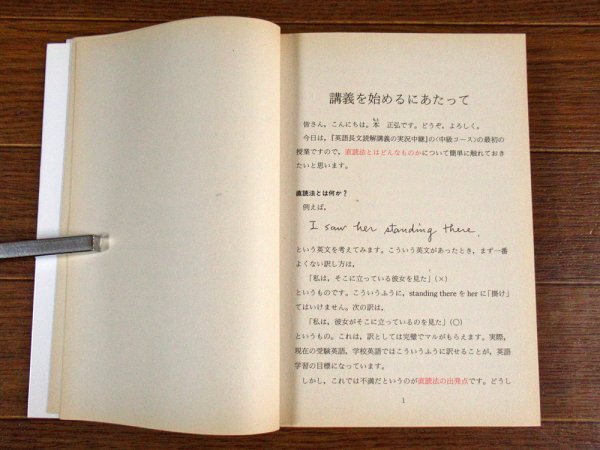 講義を始めるにあたって
皆さん，こんにちは。本 正弘です。どうぞ，よろしく。
今日は，『英語長文読解講義の実況中継』の〈中級コース〉の最初の
授業ですので，直読法とはどんなものかについて簡単に触れておき
たいと思います。
直読法とは何か？
例えば，
I saw her standing there.
という英文を考えてみます。こういう英文があったとき，まず一番
よくない訳し方は，
「私は，そこに立っている彼女を見た」(×)
というものです。こういうふうに，standing there を her に「掛け」
てはいけません。次の訳は，
「私は，彼女がそこに立っているのを見た」(○)
というもの。これは，訳としては完璧でマルがもらえます。実際，
現在の受験英語，学校英語ではこういうふうに訳せることが，英語
学習の目標になっています。
しかし，これでは不満だというのが直読法の出発点です。どうし
1